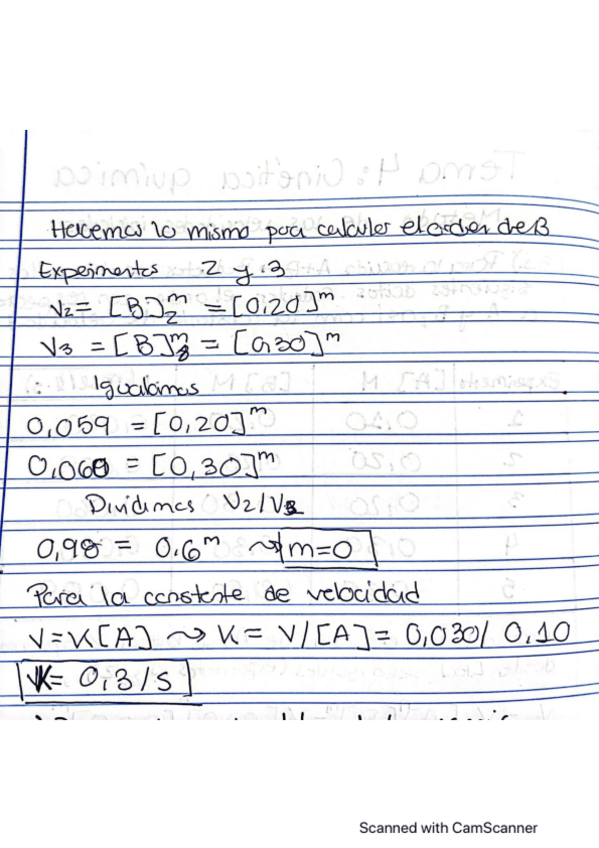 Hacemos lo mismo para calcular el orden de B
Experimentos 2 y 3
V2 = [B]₂ᵐ = [0,20]ᵐ
V3 = [B]₃ᵐ = [0,30]ᵐ
∴ Igualamos
0,059 = [0,20]ᵐ
0,060 = [0,30]ᵐ
Dividimos V2/V3
0,98 = 0.6ᵐ ⤳ m=0
Para la constante de velocidad
V=K[A] ⤳ K= V/[A] = 0,030/ 0,10
K= 0,3/s
Scanned with CamScanner